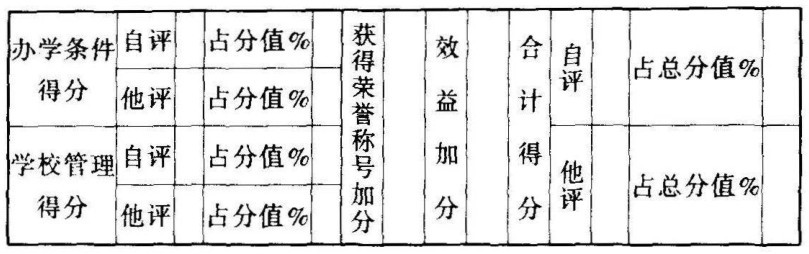 办学条件得分
自评
占分值%
他评
占分值%
学校管理得分
自评
占分值%
他评
占分值%
获得荣誉称号加分
效益加分
合计得分
自评
占总分值%
他评
占总分值%